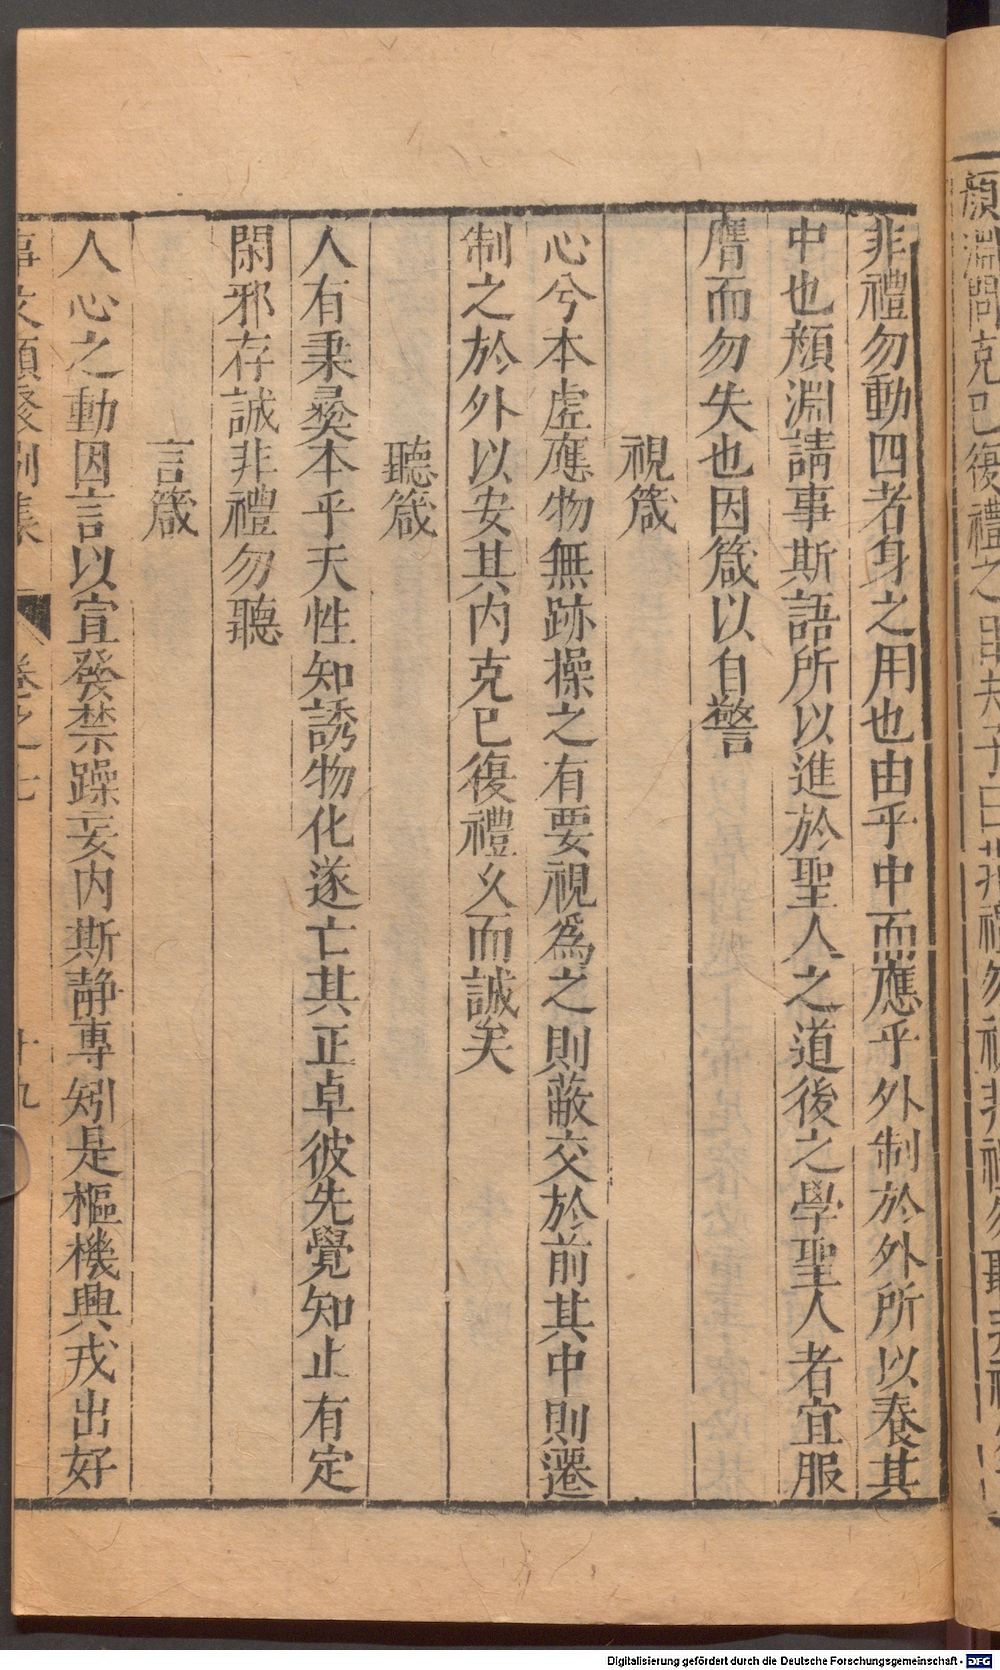 顔淵問克已復禮之目夫子曰非禮勿視非禮勿聽非禮
非禮勿動四者身之用也由乎中而應乎外制於外所以養其
中也顔淵請事斯語所以進於聖人之道後之學聖人者宜服
膺而勿失也因箴以自警
視箴
心兮本虚應物無跡操之有要視爲之則蔽交於前其中則遷
制之於外以安其内克已復禮乆而誠矣
聽箴
人有秉彛本乎天性知誘物化遂亡其正卓彼先覺知止有定
閑邪存誠非禮勿聽
言箴
人心之動因言以宣發禁躁妄内斯静專矧是樞機興戎出好
事文類聚别集 卷之七 十九
Digitalisierung gefördert durch die Deutsche Forschungsgemeinschaft - DFG